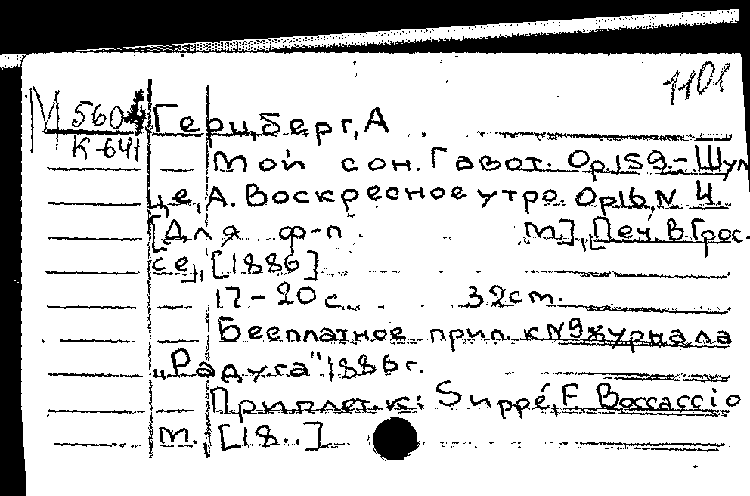 1101
М 5604 Герцберг, А
К-641
Мой сон. Гавот. Op159.- Шуль
це, А. Воскресное утро. Op16, N 4.
[Для ф-п. м], [Печ. В. Грос.
се], [1886]
17-20 с. 32 см.
Бесплатное прил. к N9 журнала
"Радуга" 1886 г.
Приплет. к: Suppé, F. Boccaccio
m. [18..]